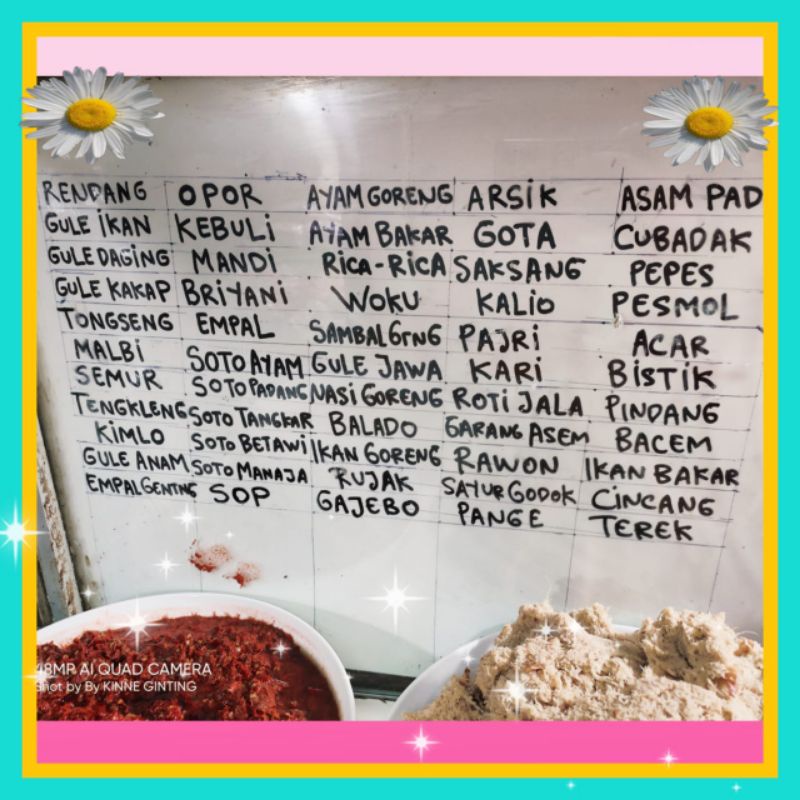 RENDANG OPOR AYAM GORENG ARSIK ASAM PAD
GULE IKAN KEBULI AYAM BAKAR GOTA CUBADAK
GULE DAGING MANDI RICA-RICA SAKSANG PEPES
GULE KAKAP BRIYANI WOKU KALIO PESMOL
TONGSENG EMPAL SAMBAL GRNG PAJRI ACAR
MALBI SOTO AYAM GULE JAWA KARI BISTIK
SEMUR SOTO PADANG NASI GORENG ROTI JALA PINDANG
TENGKLENG SOTO TANGKAR BALADO GARANG ASEM BACEM
KIMLO SOTO BETAWI IKAN GORENG RAWON IKAN BAKAR
GULE ANAM SOTO MANAJA RUJAK SAYUR GODOK CINCANG
EMPAL GENTNG SOP GAJEBO PANGE TEREK
48MP AI QUAD CAMERA
Shot by By KINNE GINTING